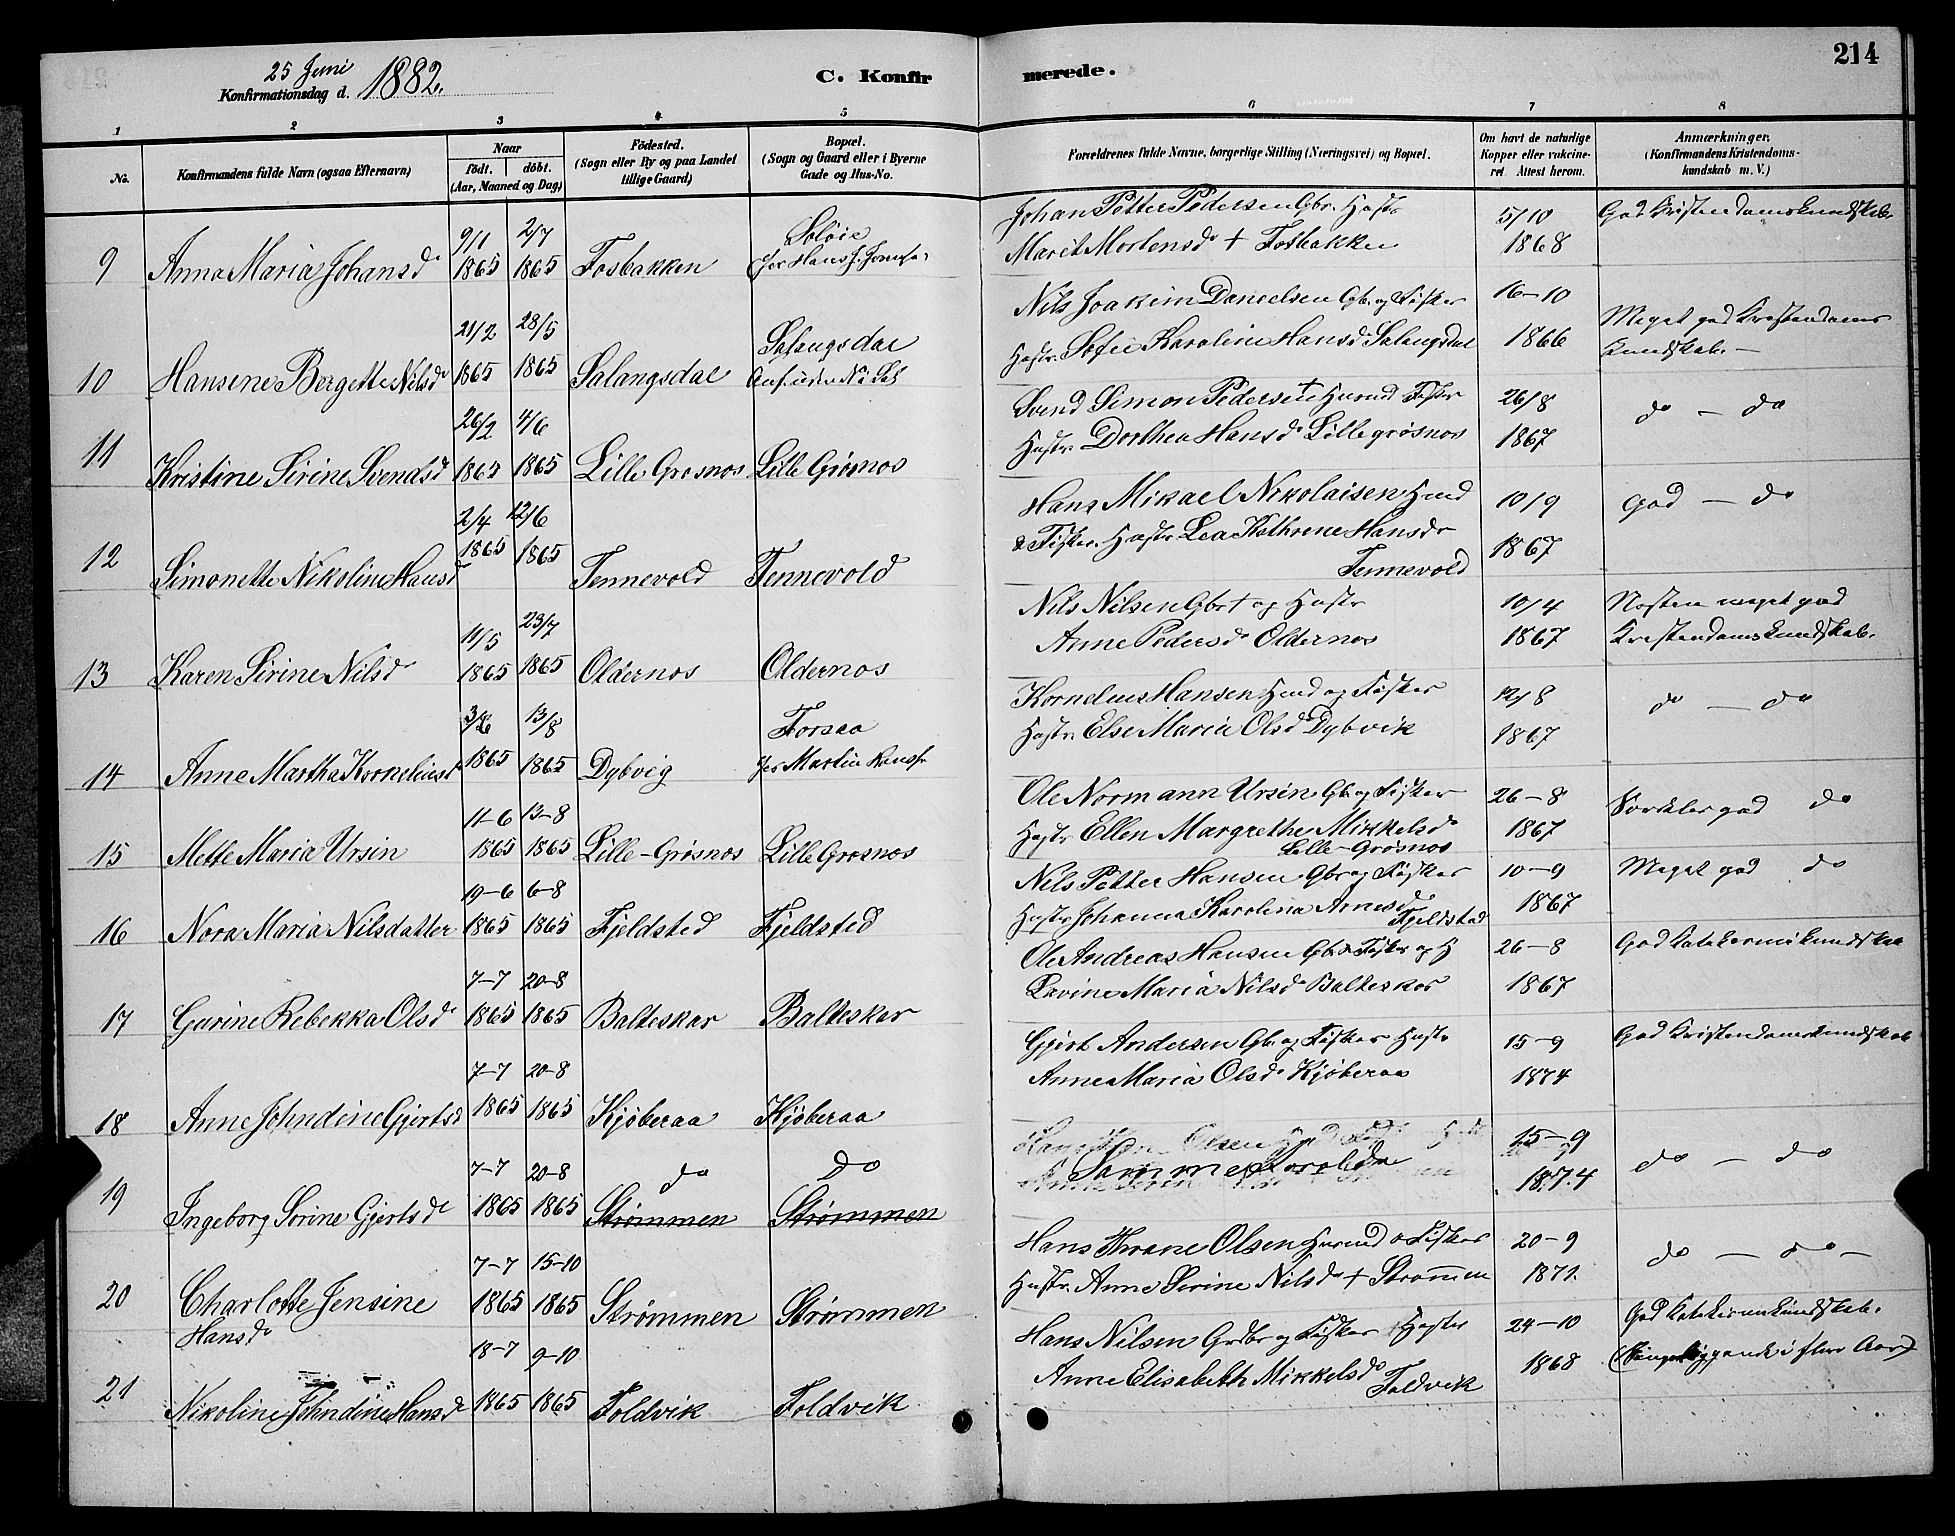 214
25 Juni
Konfirmationsdag d. 1882.
C. Konfirmerede.
1 2 3 4 5 6 7 8
No. Konfirmandens fulde Navn (ogsaa Efternavn) Naar födt. döbt. (Aar, Maaned og Dag) Födested. (Sogn eller By og paa Landet tillige Gaard) Bopæl. (Sogn og Gaard eller i Byerne Gade og Hus-No. Forældrenes fulde Navne, borgerlige Stilling (Næringsvei) og Bopæl. Om havt de naturlige Kopper eller vakcineret. Attest herom. Anmærkninger. (Konfirmandens Kristendomskundskab m. V.)
9/1 2/7 Soløie Johan Petter Pedersen Gbr. Hustr 5/10 God Kristendomskundskab.
9 Anna Maria Johansd 1865 1865 Fosbakken Marit Mortensd + Fosbakken 1868
21/2 28/5 Salangsdal Nils Joakim Danielsen Gb. og Fisker 16-10 Meget god Kristendoms
10 Hansene Bergette Nilsd 1865 1865 Salangsdal Hustr. Sofie Karoline Hansd Salangsdal 1866 kundskab. —
26/2 4/6 Svend Simon Pedersen + Husmd Fisker 26/8 do — do
11 Kristine Sirine Svendsd 1865 1865 Lille Grøsnos Lille Grøsnos Hustr. Dorthea Hansd Lillegrøsnos 1867
2/4 12/6 Hans Mikael Nikolaisen Hmd 10/9 god — do
12 Simonette Nikoline Hansd 1865 1865 Tennevold Tennevold & Fisker. Hustr Lea Kathrene Hansdr 1867
Tennevold
11/5 23/7 Nils Nilsen Gbr + og Hustr 10/4 Næsten meget god
13 Karen Sirine Nilsd 1865 1865 Oldernos Oldernos Anne Pedersd Oldernos 1867 Kristendomskundskab.
3/6 13/8 Forsaa Kornelius Hansen Hmd og Fisker 12/8 do — do
14 Anne Martha Korneliusd 1865 1865 Dybvig Hustr. Else Maria Olsd Dybvik 1867
11-6 13-8 Ole Normann Ursin Gb. og Fisker 26-8 god do
15 Mette Maria Ursin 1865 1865 Lille-Grøsnos Lille Grøsnos Hustr Ellen Margrethe Mikkelsd 1867
Lille-Grøsnos
19-6 6-8 Nils Petter Hansen Gbr og Fisker 10-9 Meget god do
16 Nora Maria Nilsdatter 1865 1865 Fjeldsted Fjeldsted Hustr Johanna Karolina Arnesd Fjeldstad 1867
7-7 20-8 Ole Andreas Hansen Gbr Fisker og H 26-8
17 Gurine Rebekka Olsd 1865 1865 Balteskar Balteskar Lavine Maria Nilsd Balteskar 1867
7-7 20-8 Gjert Andersen Gb. og Fisker Hustr 15-9 God Kristendomskundskab
18 Anne Johndine Gjertsd 1865 1865 Kjøberaa Kjøberaa Anne Maria Olsd Kjøberaa 1874
7-7 20-8 do do Samme Foreldre 15-9 do — do
19 Ingeborg Sorine Gjertsd 1865 1865 Strømmen Strømmen 1874
7-7 15-10 Hans Thrane Olsen Husmd o Fisker 20-9 do — do —
20 Charlotte Jensine 1865 1865 Strømmen Strømmen Hustr. Anne Serine Nilsd + Strømmen 1871.
Hansd
18-7 9-10 Hans Nilsen Grdbr og Fisker Hustr 24-10
21 Nikoline Johndine Hansd 1865 1865 Foldvik Foldvik Anne Elisabeth Mikkelsd Foldvik 1868 i flere Aar)